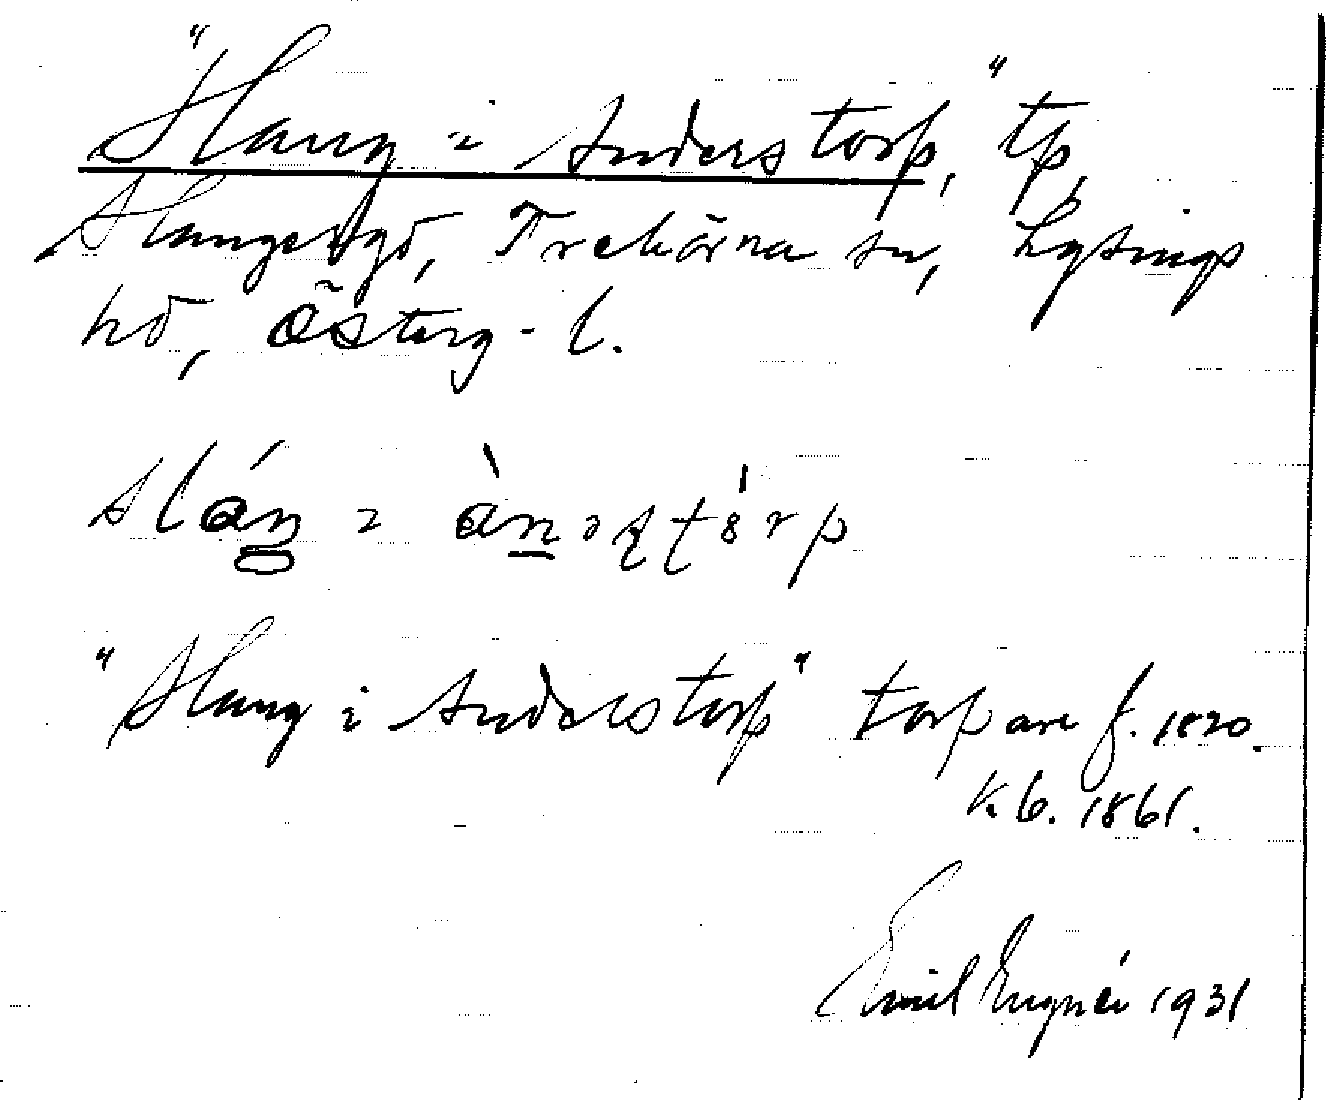 "Slang i Anderstorp," tp,
Slangeryd, Trehörna sn, Lysings
hd, Österg-l.
sláŋ i ànəʂʈórp
"Slang i Anderstorp" torpare f. 1820.
k.b. 1861.
Emil 1931